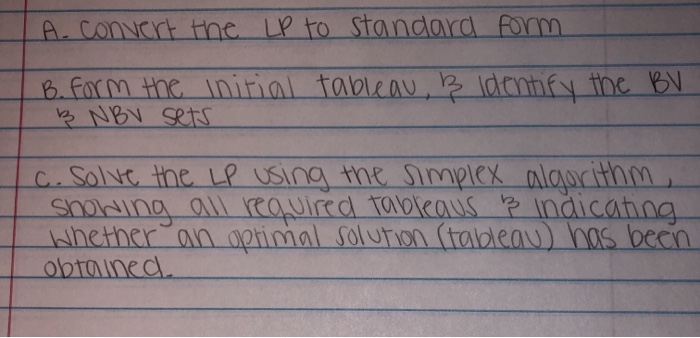 A. Convert the LP to standard form
B. Form the initial tableau, & identify the BV
& NBV sets
C. Solve the LP using the simplex algorithm,
showing all required tableaus & indicating
whether an optimal solution (tableau) has been
obtained.